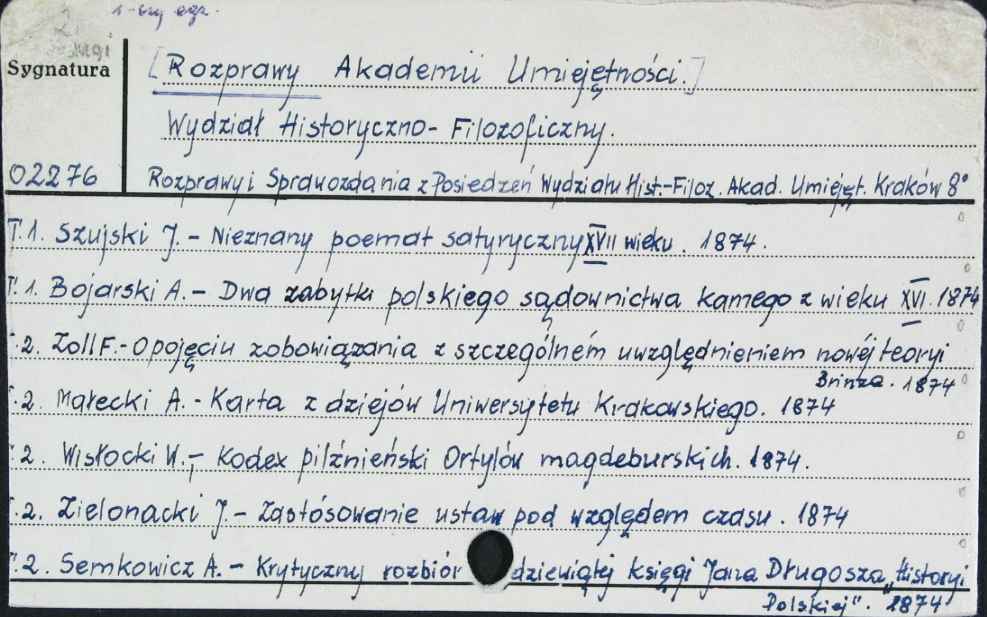 1-szy egz.
Sygnatura
[Rozprawy Akademii Umiejętności.]
Wydział Historyczno-Filozoficzny.
02276
Rozprawy i Sprawozdania z Posiedzeń Wydziału Hist.-Filoz. Akad. Umiejęt. Kraków 8°
T.1. Szujski J. - Nieznany poemat satyryczny XVII wieku. 1874.
T.1. Bojarski A. - Dwa zabytki polskiego sądownictwa karnego z wieku XVI. 1874
T.2. Zoll F. - O pojęciu zobowiązania z szczególném uwzględnieniem nowéj teoryi
Brinza. 1874
T.2. Małecki A. - Karta z dziejów Uniwersytetu Krakowskiego. 1874
T.2. Wisłocki W. - Kodex pilźnieński Ortylów magdeburskich. 1874.
T.2. Zielonacki J. - Zastósowanie ustaw pod względem czasu. 1874
T.2. Semkowicz A. - Krytyczny rozbiór dziewiątej księgi Jana Długosza „Historyi
Polskiej". 1874